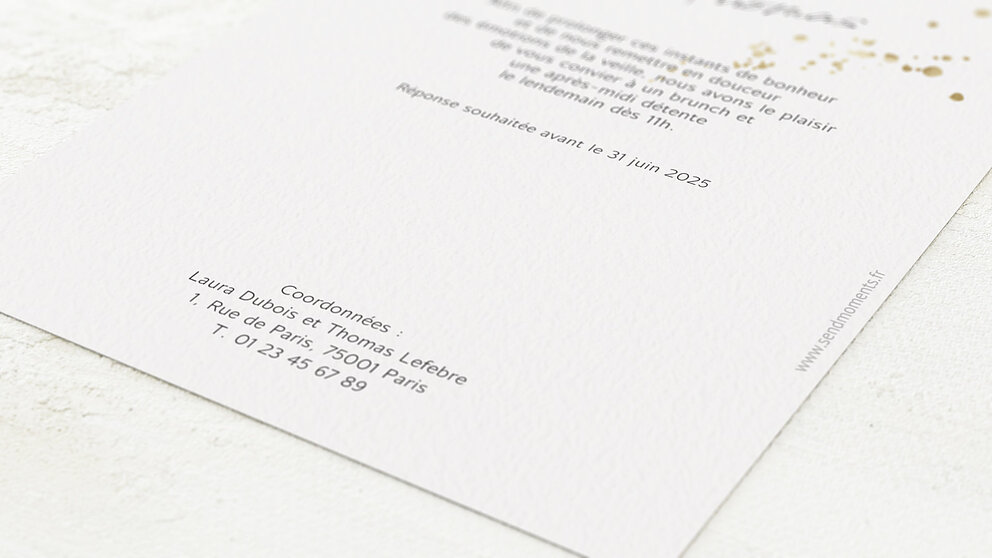 Afin de prolonger ces instants de bonheur
et de nous remettre en douceur
des émotions de la veille, nous avons le plaisir
de vous convier à un brunch et
une après-midi détente
le lendemain dès 11h.
Réponse souhaitée avant le 31 juin 2025
Coordonnées :
Laura Dubois et Thomas Lefebre
1, Rue de Paris, 75001 Paris
T. 01 23 45 67 89
www.sendmoments.fr